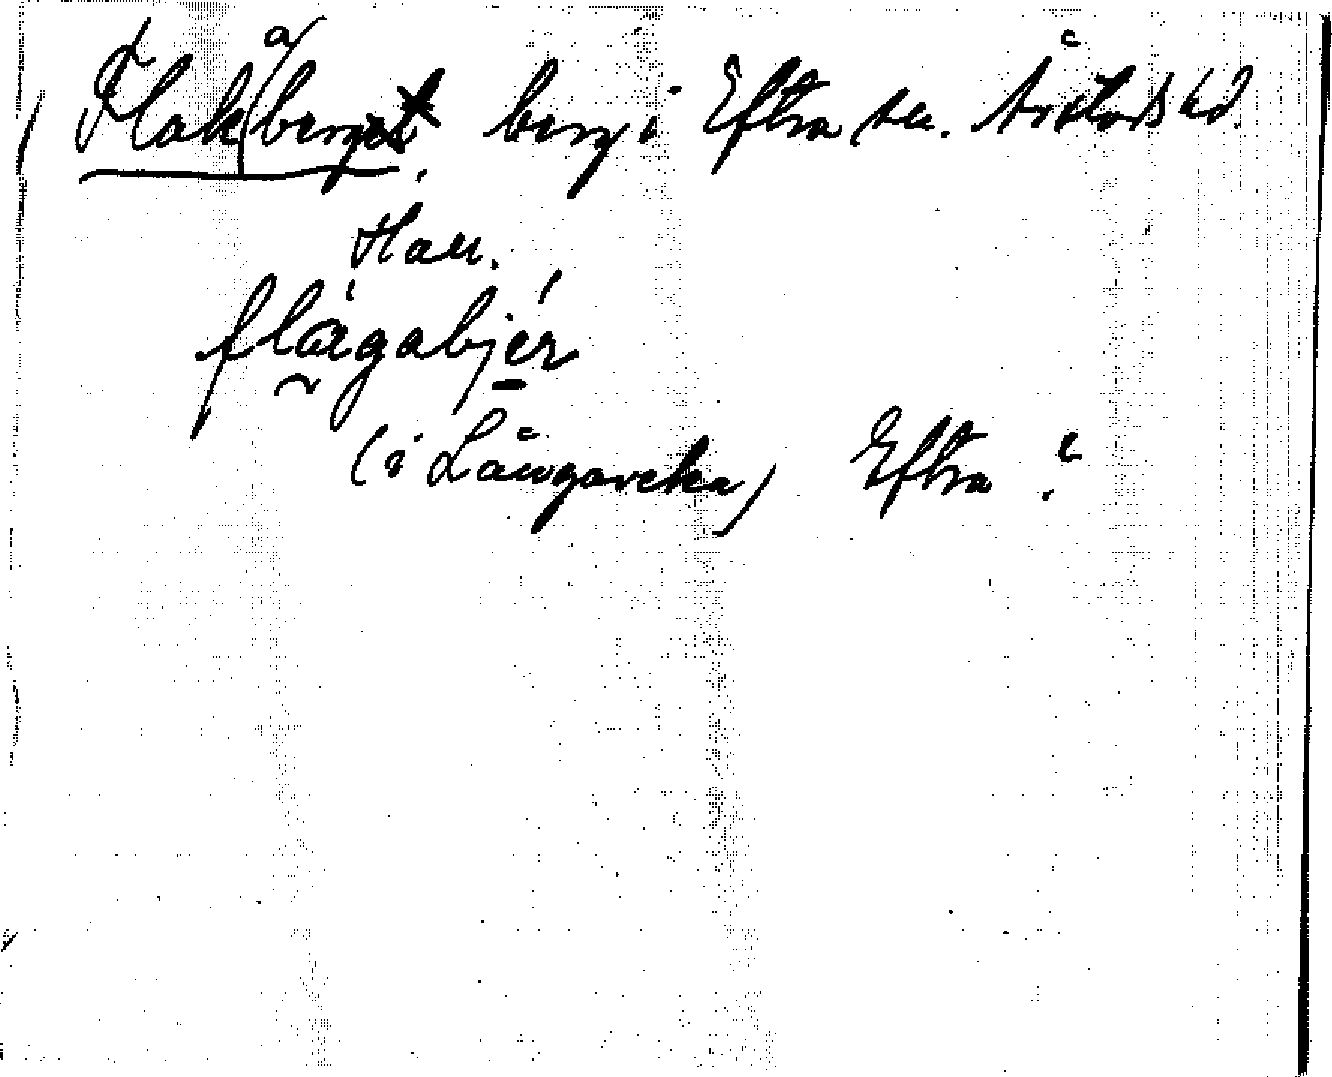 Flakaberget, berg i Eftra sn. Årstads hd.
Hall.
flagabjer
(i Långaveka) Eftra ?